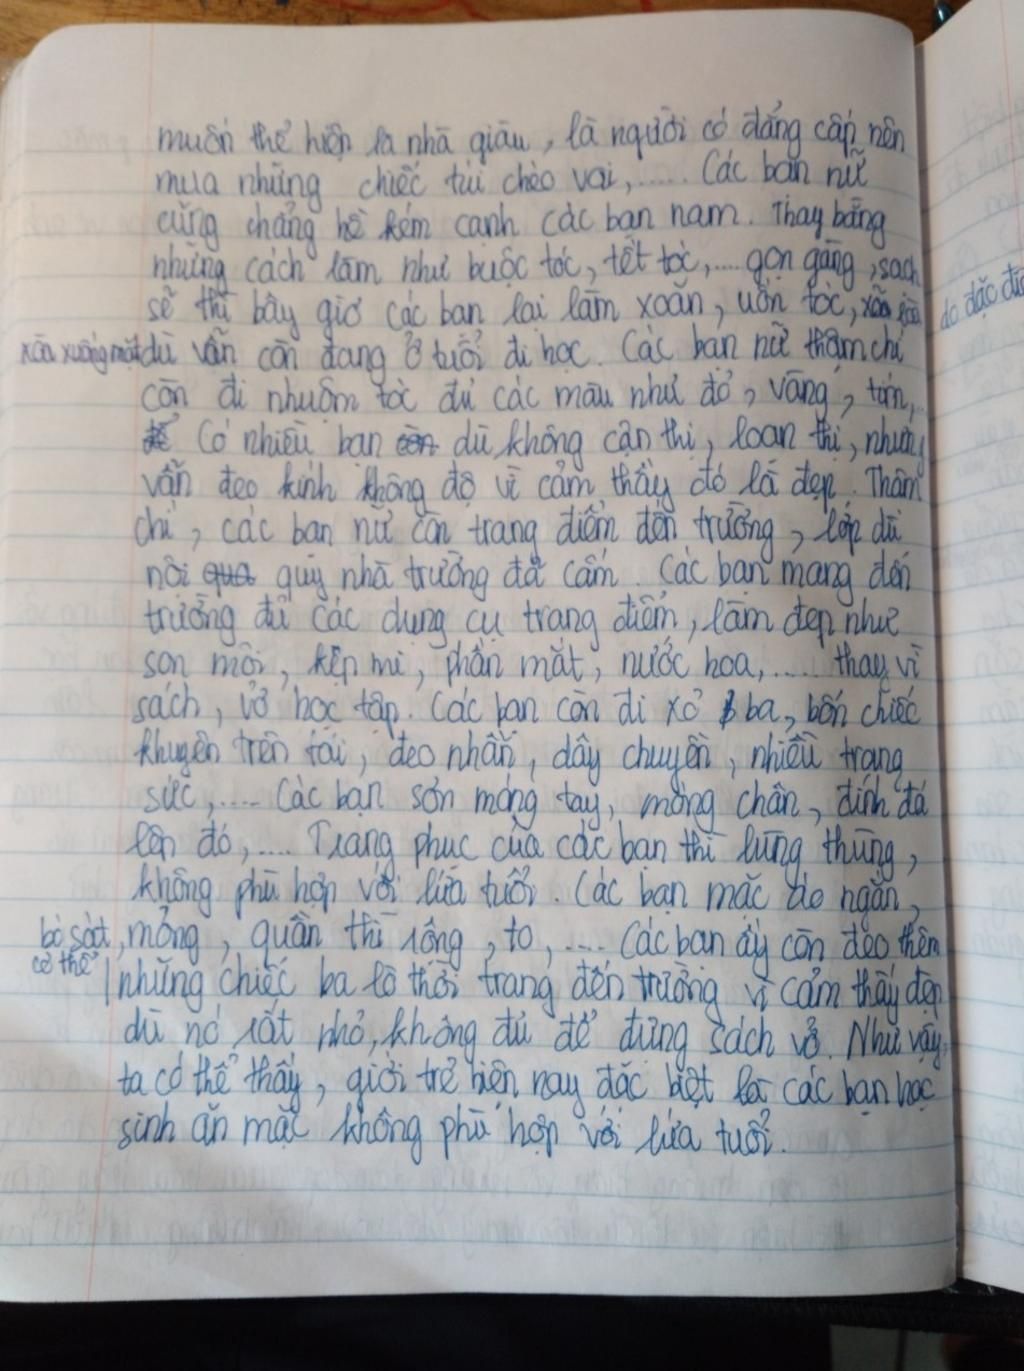 muốn thể hiện là nhà giàu, là người có đẳng cấp nên
mua những chiếc túi chéo vai,...... Các bạn nữ
cũng chẳng hề kém cạnh các bạn nam. Thay bằng
những cách làm như buộc tóc, tết tóc,.... gọn gàng, sạch
sẽ thì bây giờ các bạn lại làm xoăn, uốn tóc,
xõa xuống mặt dù vẫn còn đang ở tuổi đi học. Các bạn nữ thậm chí
còn đi nhuộm tóc đủ các màu như đỏ, vàng, tím,..
Có nhiều bạn còn dù không cận thị, loạn thị, nhưng
vẫn đeo kính không độ vì cảm thấy đó là đẹp. Thậm
chí, các bạn nữ còn trang điểm đến trường, lớp dù
nội qua quy nhà trường đã cấm. Các bạn mang đến
trường đủ các dụng cụ trang điểm, làm đẹp như
son môi, kẹp mi, phấn mắt, nước hoa,..... thay vì
sách, vở học tập. Các bạn còn đi xỏ ba, bốn chiếc
khuyên trên tai, đeo nhẫn, dây chuyền, nhiều trang
sức,..... Các bạn sơn móng tay, móng chân, đính đá
lên đó,.... Trang phục của các bạn thì lùng thùng,
không phù hợp với lứa tuổi. Các bạn mặc áo ngắn,
bó sát cơ thể, mỏng, quần thì rộng, to,.... Các bạn ấy còn đeo thêm
những chiếc ba lô thời trang đến trường vì cảm thấy đẹp
dù nó rất nhỏ, không đủ để đựng sách vở. Như vậy,
ta có thể thấy, giới trẻ hiện nay đặc biệt là các bạn học
sinh ăn mặc không phù hợp với lứa tuổi.